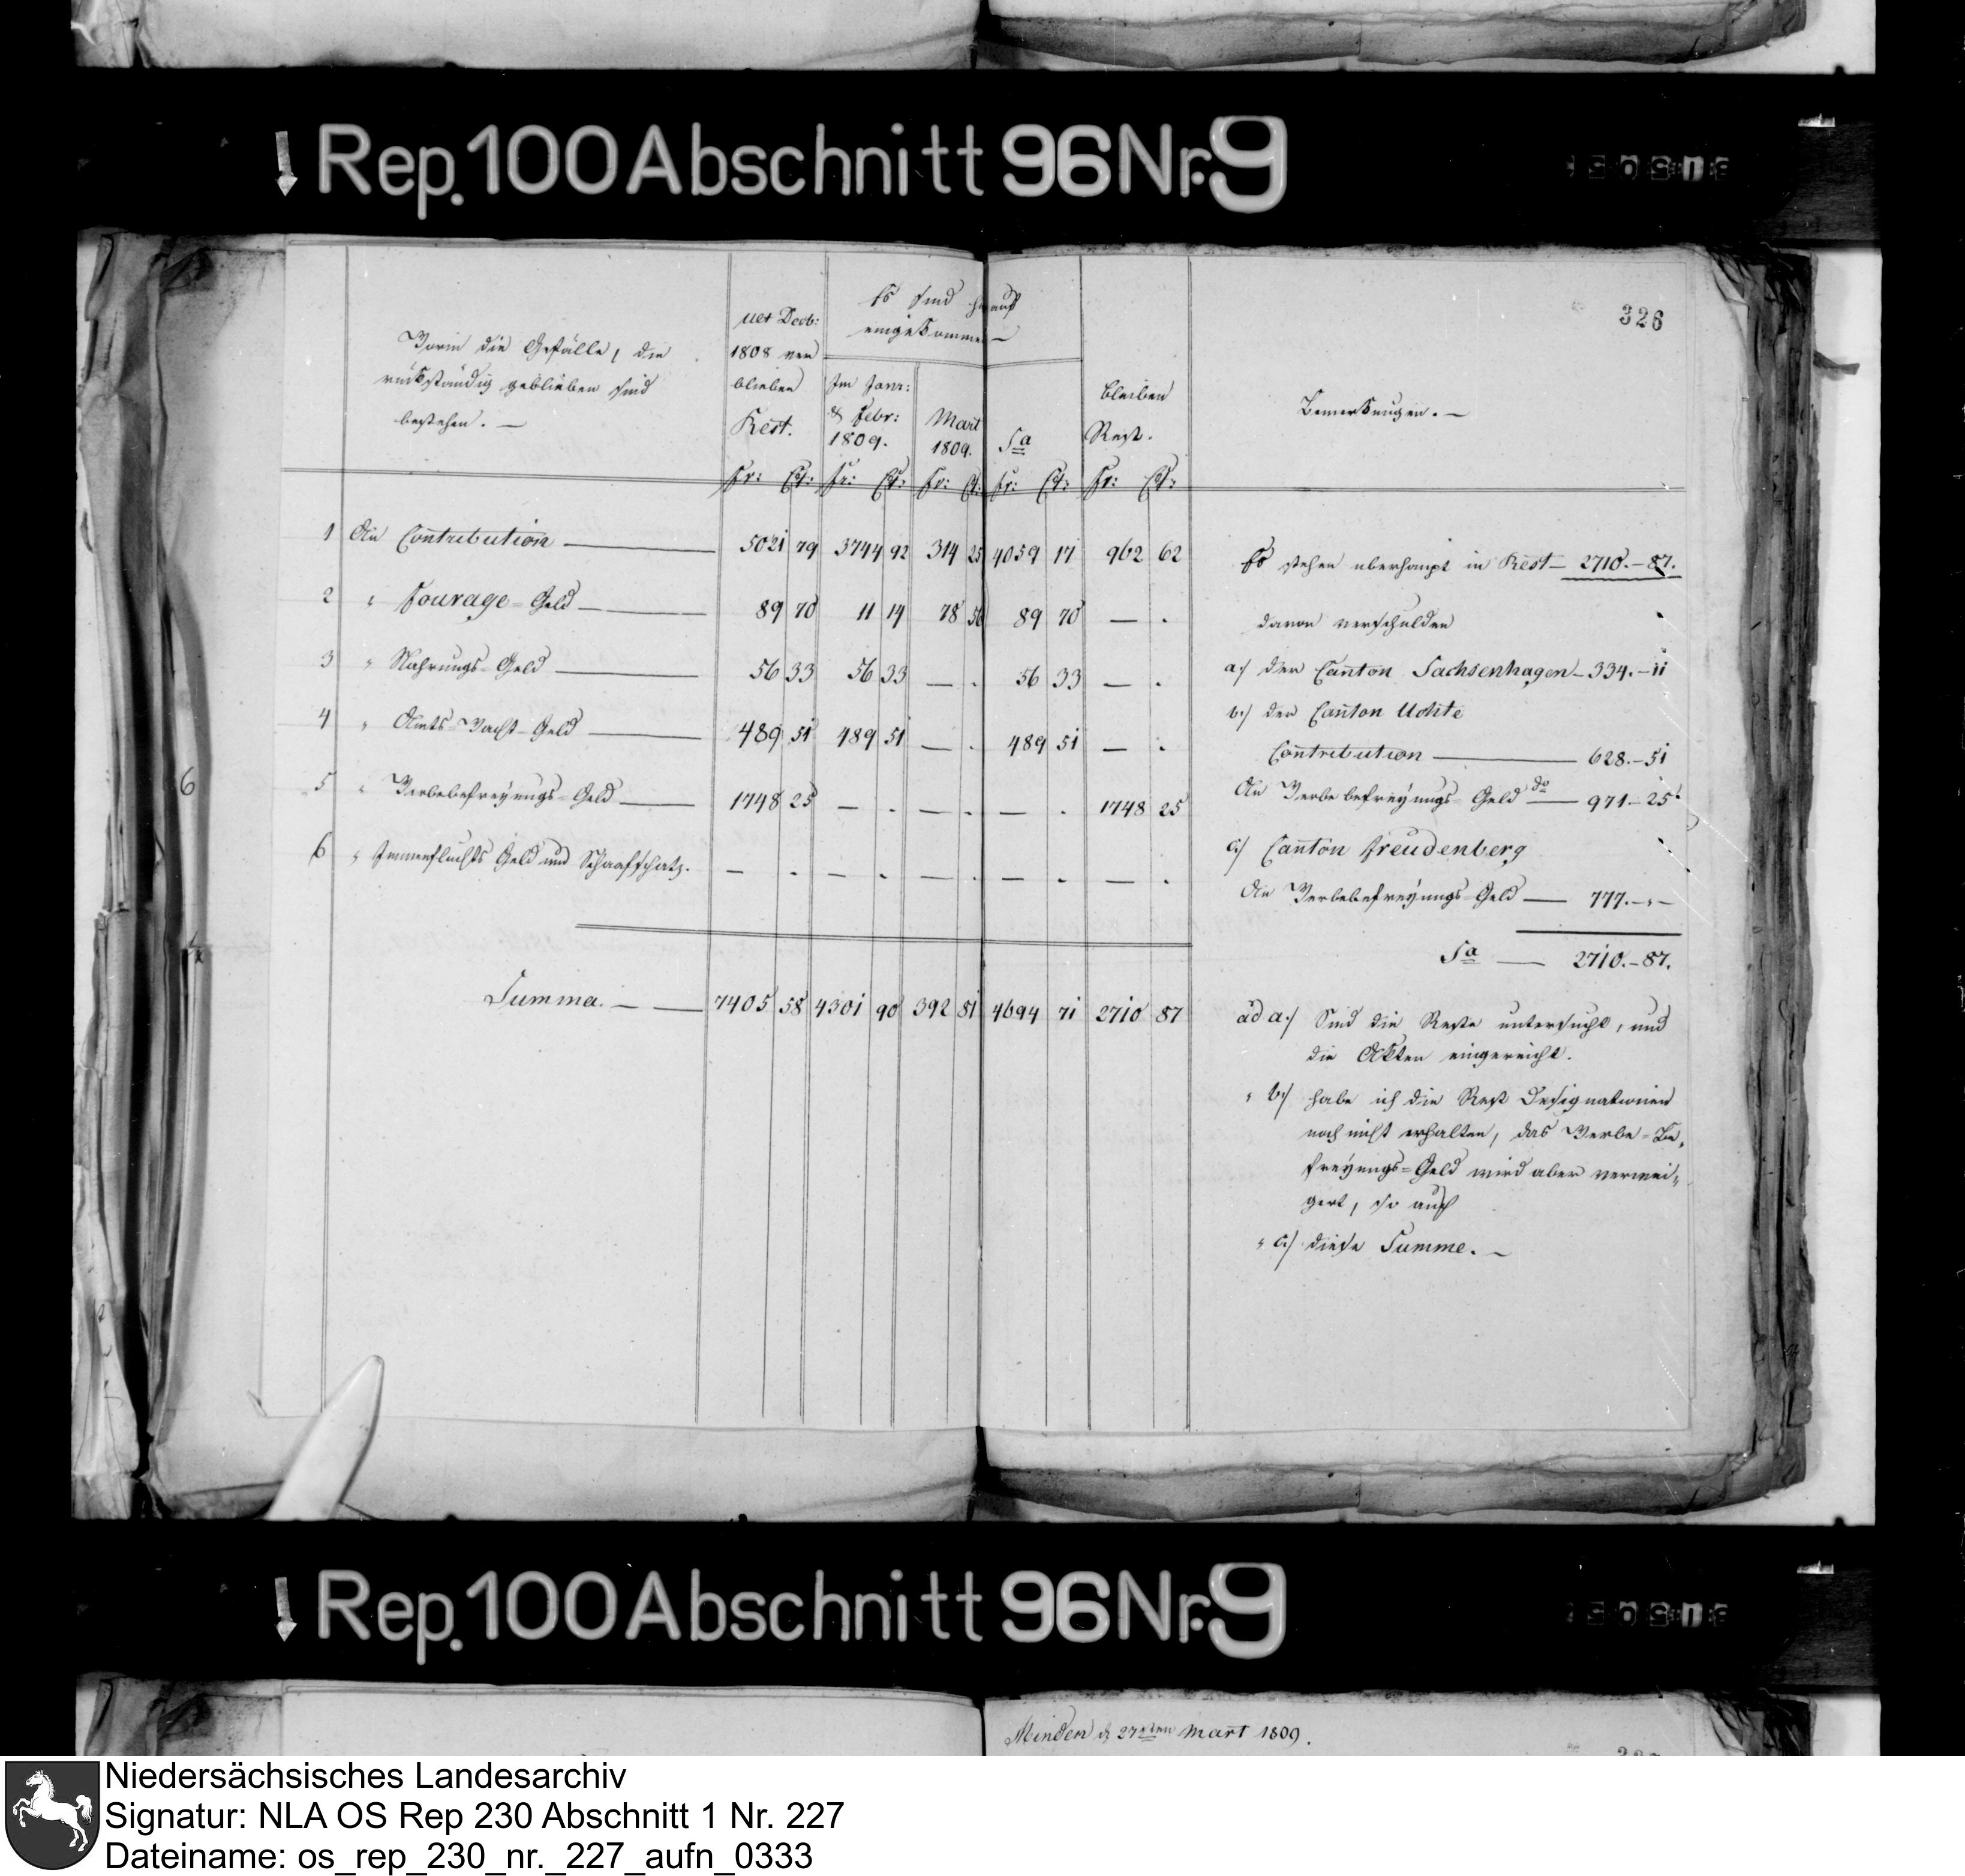 Rep. 100 Abschnitt 96 Nr. 9
326
Worin die Gefälle, die
rückständig geblieben sind
bestehen. —
ult Decb:
1808 ver
blieben
Rest.
Es sind hierauf
eingekommen —
Im Janr:
& Febr:
1809.
Mart
1809.
Sa
bleiben
Rest.
Bemerkungen. —
Fr: Ct: Fr: Ct: Fr: Ct: Fr: Ct: Fr: Ct:
1 An Contribution — 5021 79 3744 92 314 25 4059 17 962 62
2 " Fourage-Geld — 89 70 11 14 78 56 89 70 — .
3 " Nahrungs-Geld — 56 33 56 33 — . 56 33 — .
4 " Amts-Wacht-Geld — 489 51 489 51 — . 489 51 — .
5 " Werbebefreyungs-Geld — 1748 25 — . — . — . 1748 25
6 " Immenfluchts Geld und Schaafschatz. — . — . — . — . — .
Summa. — — 7405 58 4301 90 392 81 4694 71 2710 87
Es stehen überhaupt in Rest — 2710. — 87.
davon verschulden
a.) der Canton Sachsenhagen — 334. — 11
b.) der Canton Uchte
Contribution — 628. — 51
An Werbebefreyungs-Geld do — 971 — 25
c.) Canton Freudenberg
An Werbebefreyungs-Geld — 777. — " —
Sa — 2710. — 87.
ad a.) Sind die Reste untersucht, und
die Akten eingereicht.
" b.) habe ich die Rest Designationen
noch nicht erhalten, das Werbe-Be-
freyungs-Geld wird aber verwei-
gert, so auch
" c.) diese Summe. —
6
Rep. 100 Abschnitt 96 Nr. 9
Minden d. 27sten Mart 1809.
Niedersächsisches Landesarchiv
Signatur: NLA OS Rep 230 Abschnitt 1 Nr. 227
Dateiname: os_rep_230_nr._227_aufn_0333